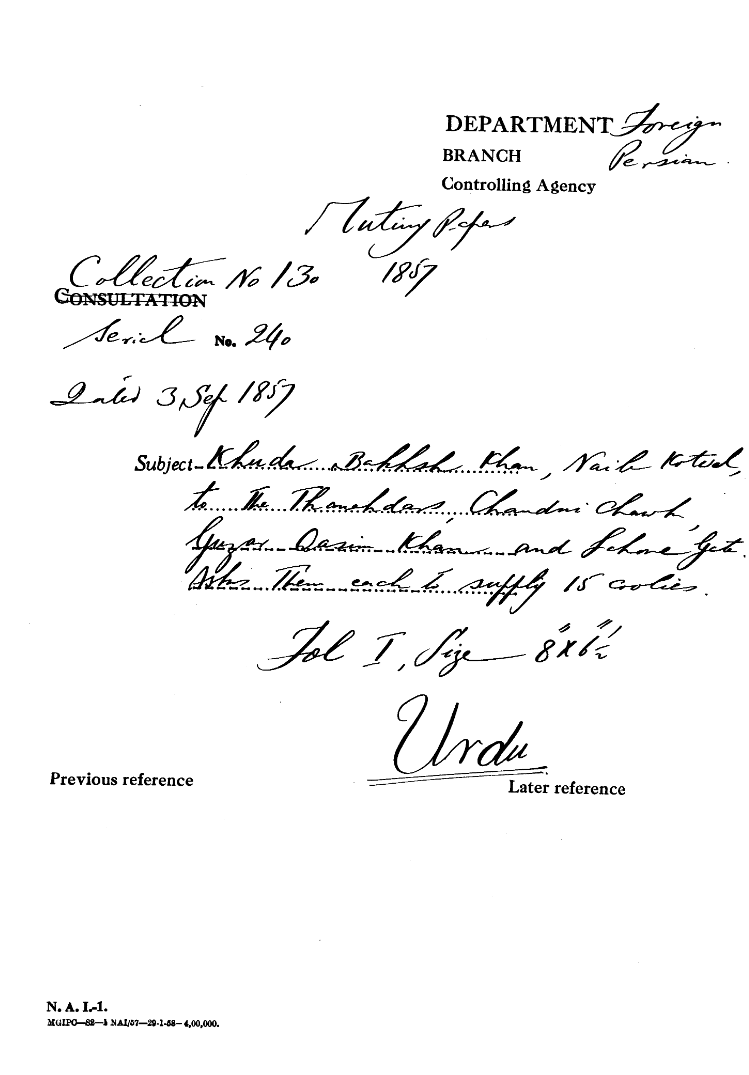 DEPARTMENT Foreign
BRANCH Persian.
Controlling Agency
Mutiny Papers
1857
Collection No 130
CONSULTATION
Serial No. 240
Dated 3, Sep 1857
Subject- Khuda Bakhsh Khan, Naib Kotwal,
to The Thanehdars, Chandni Chawk,
Guzar Qasim Khan and Lahore Gate.
Asks Them each to supply 15 coolies.
Fol I, Size 8" x 6½"
Urdu
Previous reference
Later reference
N. A. I.-1.
MGIPC—82—1 NAI/57—29-1-58—4,00,000.